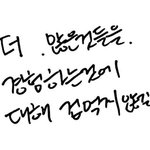 더 많은것들을.
경험하는것에
대해 겁먹지 않길